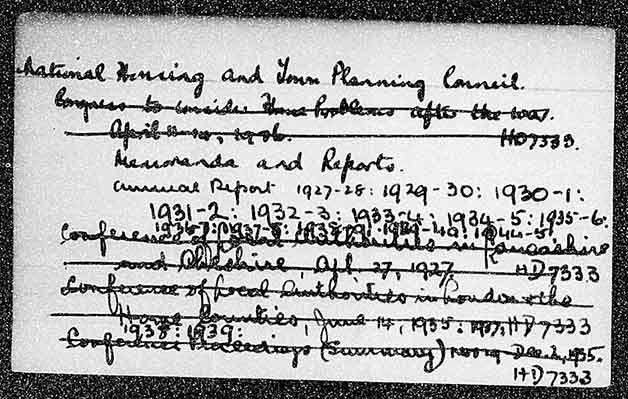 National Housing and Town Planning Council.
Congress to consider Home Problems after the war.
April 11-12, 1916. HD7333.
Memoranda and Reports.
Annual Report 1927-28: 1929-30: 1930-1:
1931-2: 1932-3: 1933-4: 1934-5: 1935-6:
1936-7: 1937-8: 1938-9: 1939-40: 1944-5:
Conference of Local Authorities in Lancashire
and Cheshire, Apl. 27, 1927. HD7333
Conference of Local Authorities in London & the
Home Counties, June 14, 1935: 1937: HD7333
1938: 1939:
Conference Proceedings (Summary) Dec. 2, 1935.
HD7333